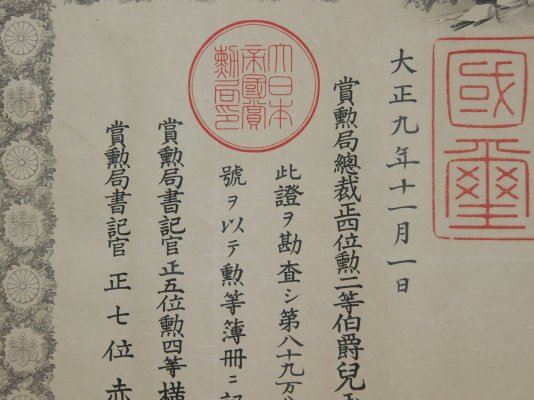 國璽
大正九年十一月一日
大日本
帝國賞
勲局印
賞勲局總裁正四位勲二等伯爵兒
此證ヲ勘査シ第八十九万
號ヲ以テ勲等簿册ニ記
賞勲局書記官正五位勲四等横
賞勲局書記官正七位赤